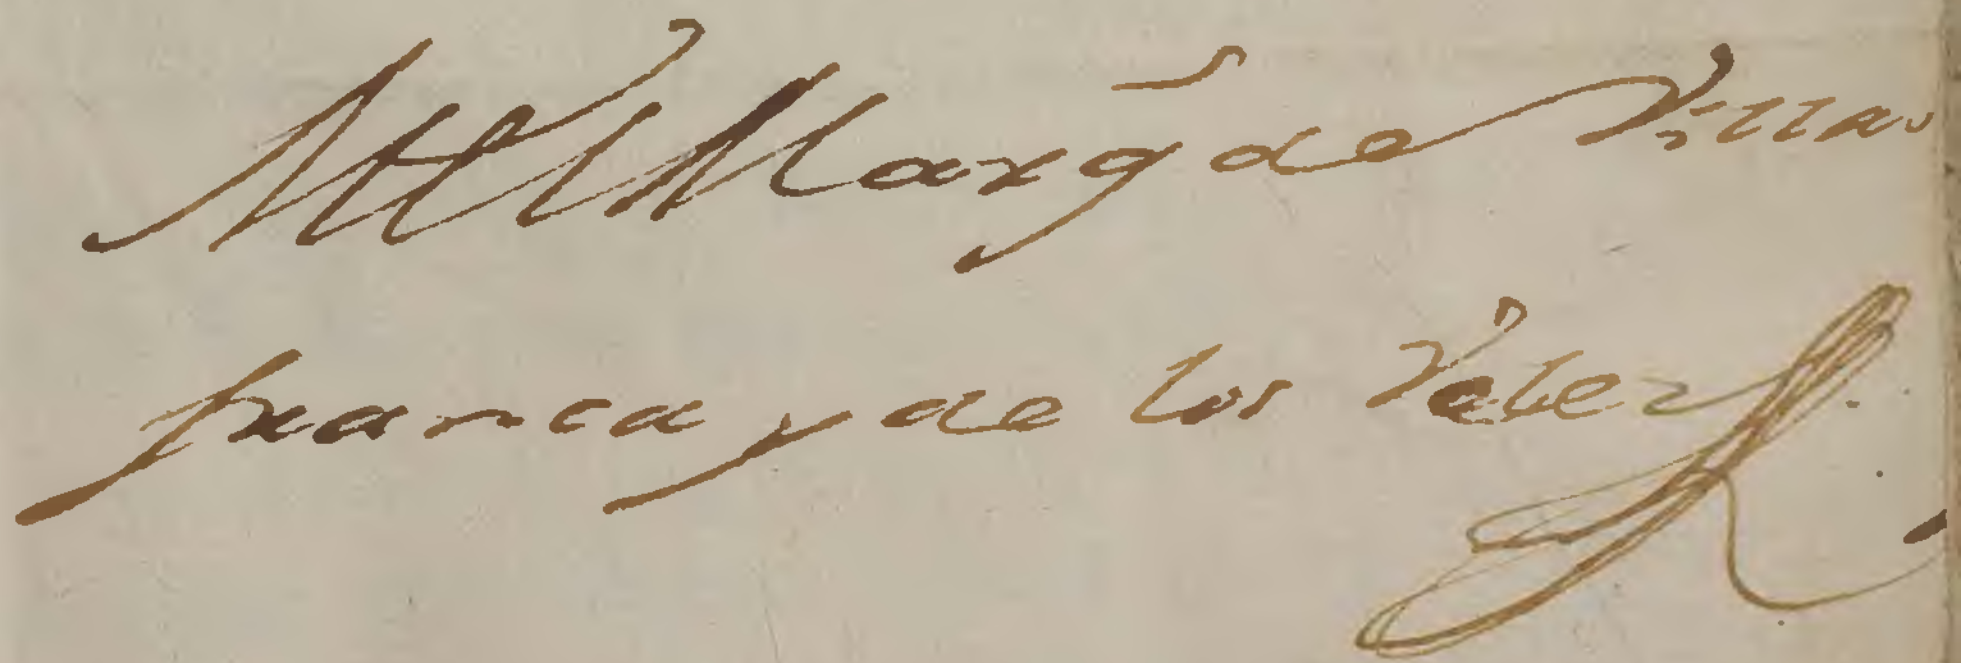 El Marq̃ de Villa
franca y de los Velez